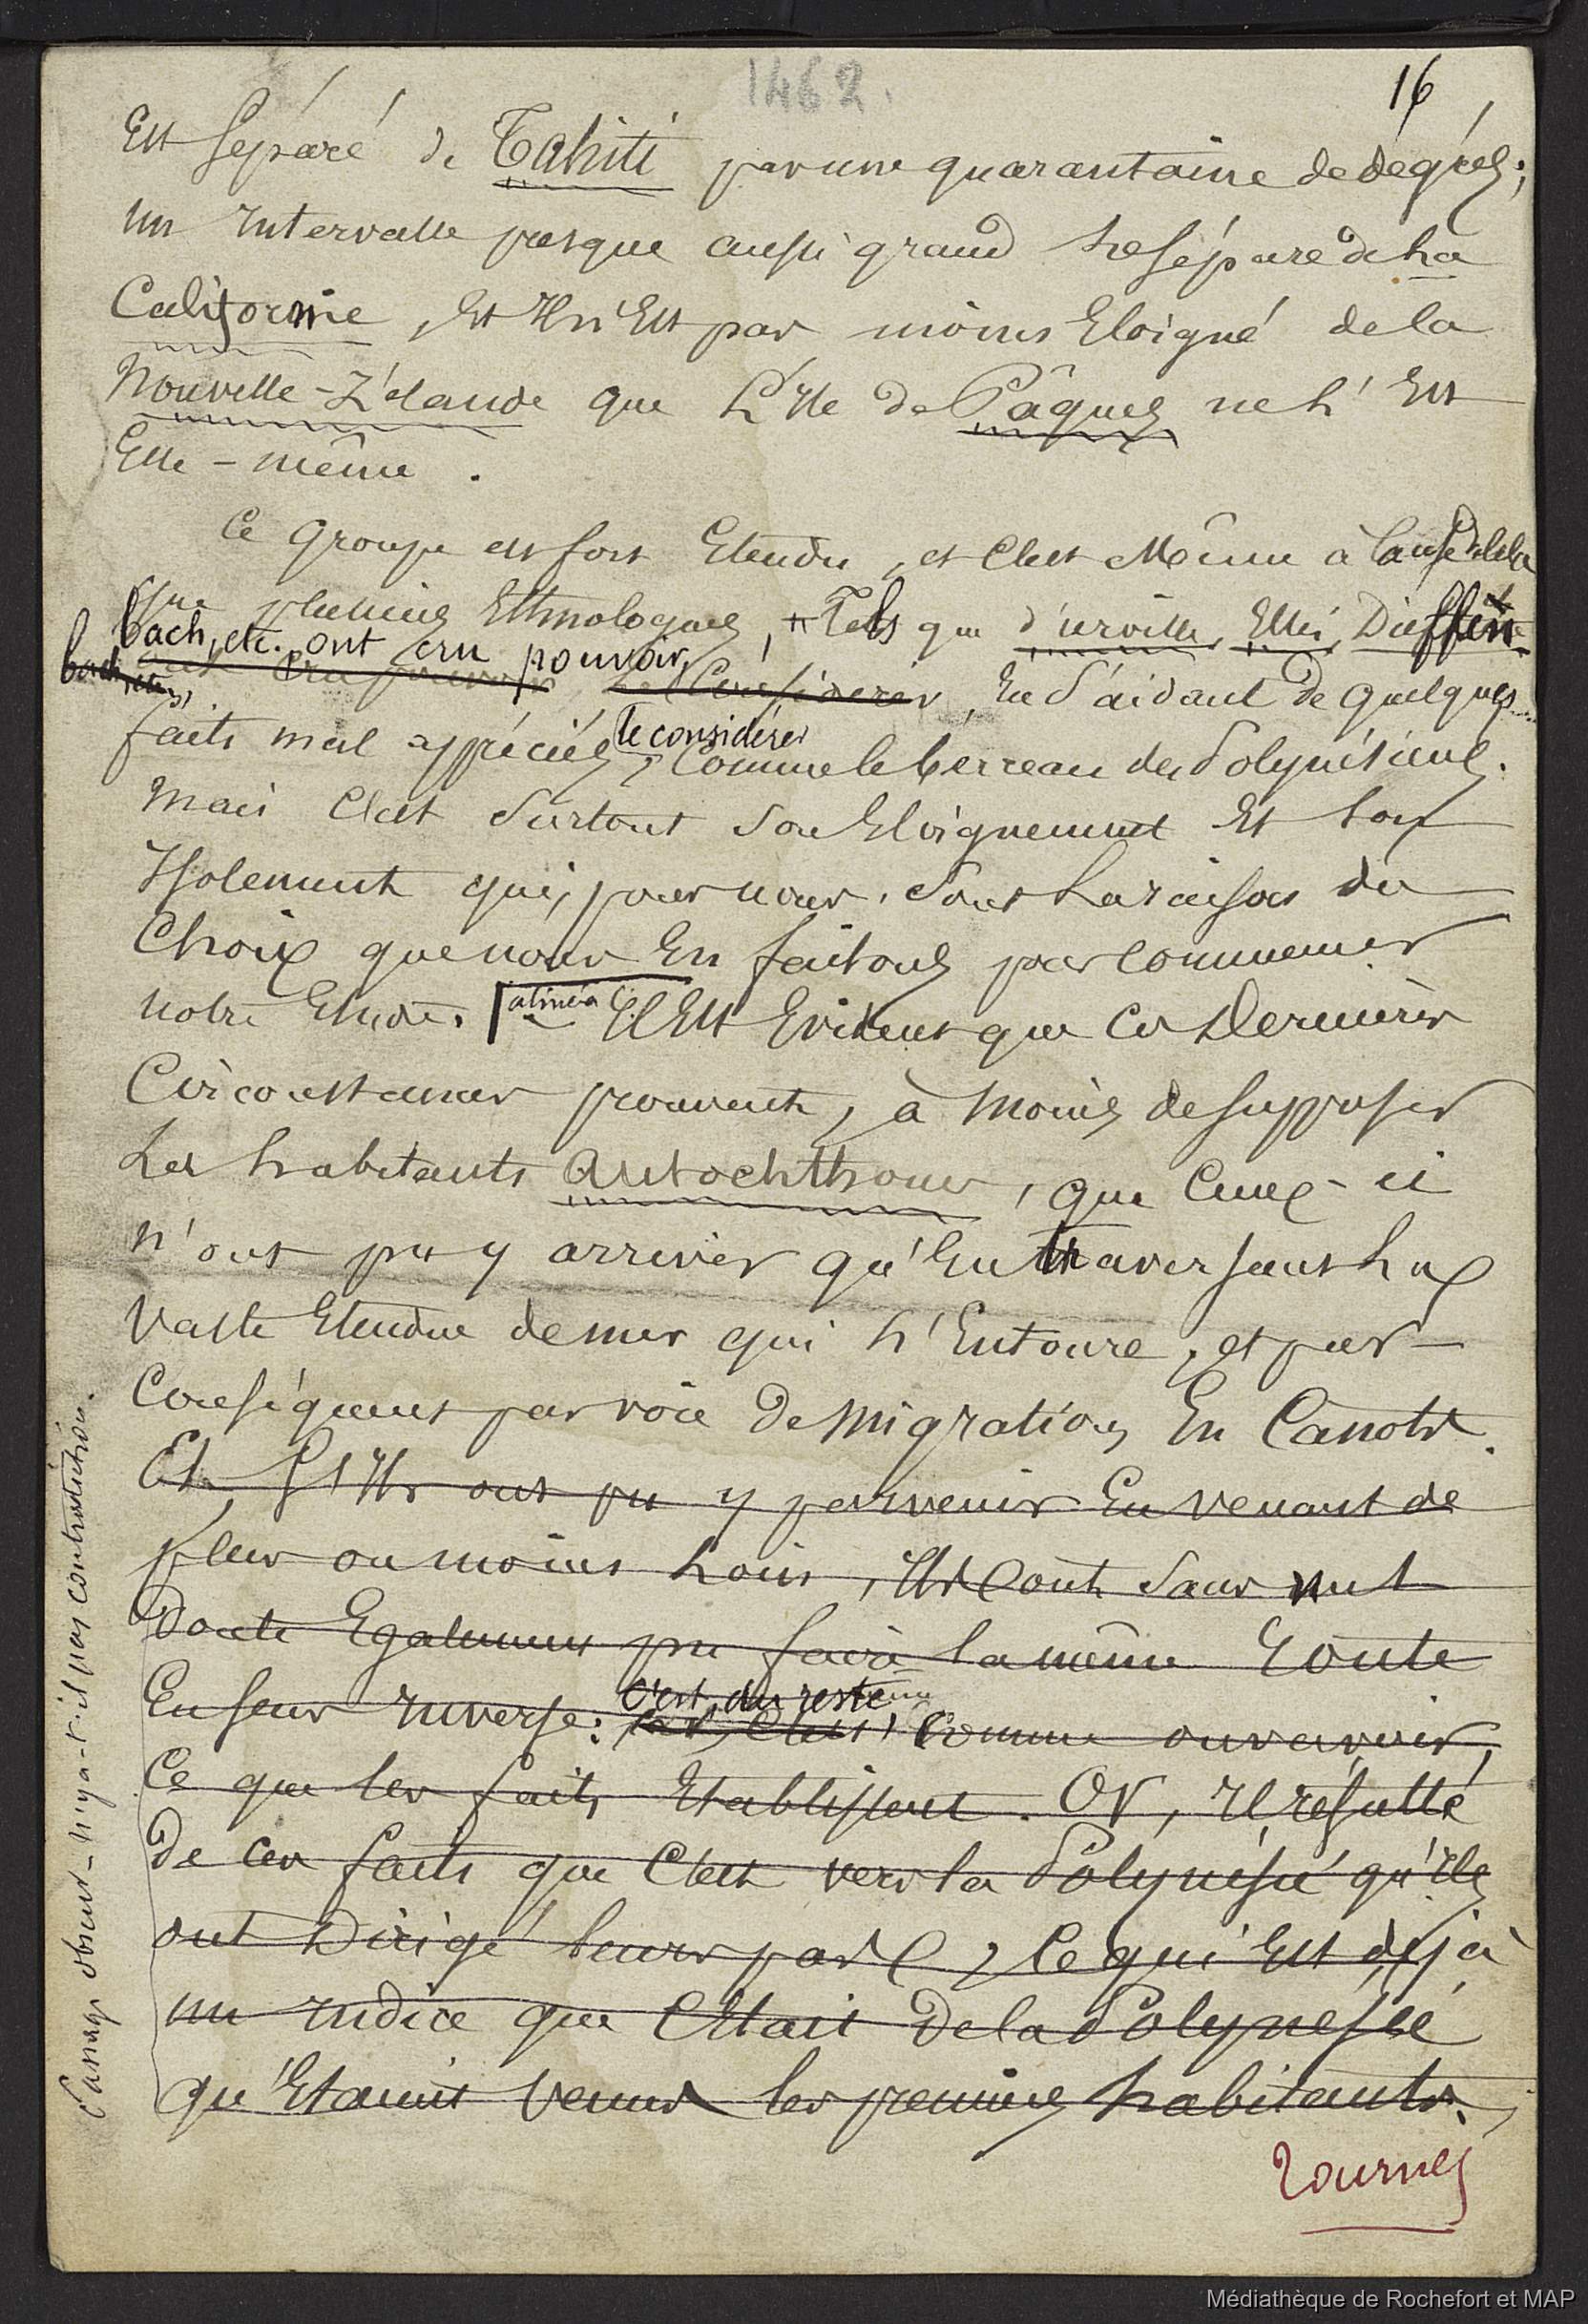 1462.
16
Est séparé de Tahiti par une quarantaine de degrés;
un Intervalle presque aussi grand le sépare de la
Californie, Et Il n'Est pas moins Eloigné de la
Nouvelle-Zélande que L'Ile de Pâques ne l'Est
Elle-même.
Ce Groupe est fort Etendu, et C'est Même à Cause de cela
que plusieurs Ethnologues, Tels que d'urville, Ellis, Dieffen-
bach, etc. ont cru pouvoir
bach, etc, ont cru pouvoir le Considérer, En S'aidant de quelques
le considérer
faits mal appréciés, Comme le berceau des Polynésiens.
Mais C'est Surtout Son Eloignement Et Son
Isolement qui, pour nous, Sont La raison du
Choix que nous En faisons pour commencer
notre Etude. [alinéa Il Est Evident que Ces Dernières
Circonstances prouvent, à Moins de supposer
Les habitants Autochthones, que Ceux-ci
n'ont pu y arriver qu'En traversant La
Vaste Etendue de mer qui L'Entoure, et par
Conséquent par voie De Migrations En Canots.
Et, S'Ils ont pu y parvenir En venant de
plus ou moins Loin, Ils l'ont Sans nul
Doute Egalement pu faire la même Route
En sens Inverse: C'est, du reste
car C'est, Comme on va voir,
Ce que les faits Etablissent. Or, Il résulte
De Ces faits que C'est vers la Polynésie qu'Ils
ont Dirigé leurs pas, Ce qui Est déjà
un Indice que C'Etait De la Polynésie
qu'Etaient Venus les premiers habitants.
Tournez
Passage obscur - n'y a-t-il pas contradiction.
Médiathèque de Rochefort et MAP